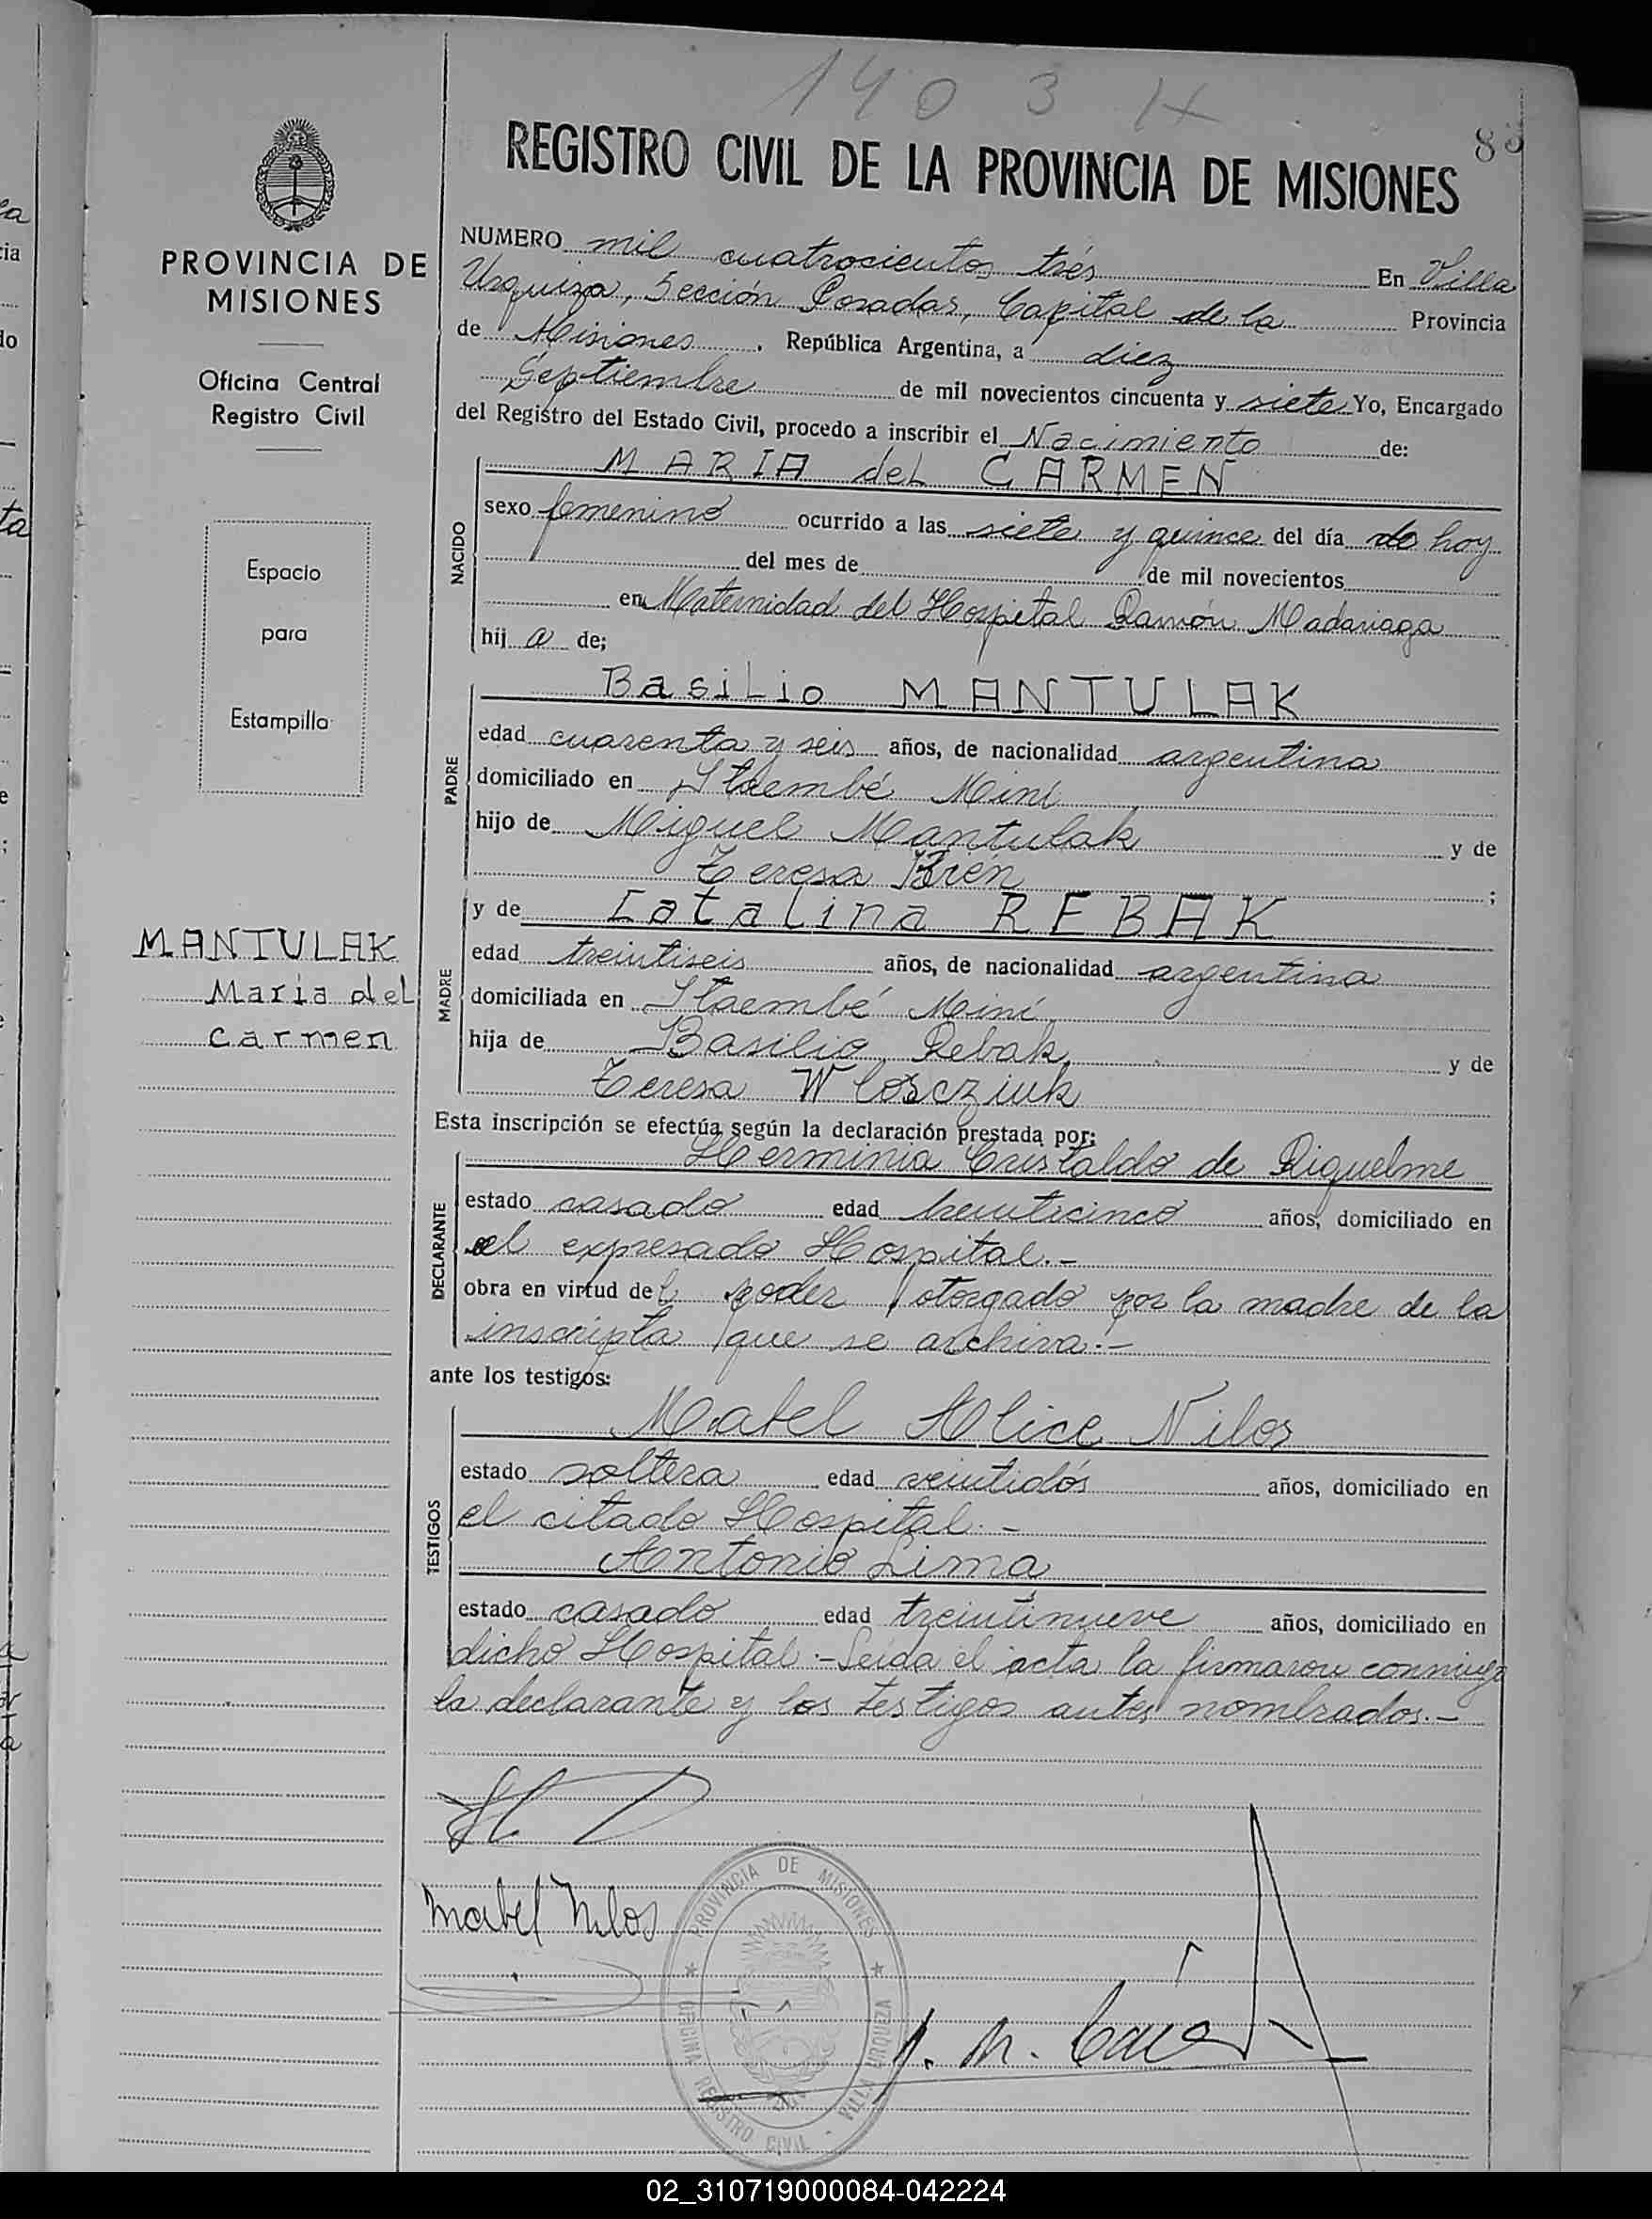 1403
83
REGISTRO CIVIL DE LA PROVINCIA DE MISIONES
PROVINCIA DE
MISIONES
Oficina Central
Registro Civil
Espacio
para
Estampilla
MANTULAK
Maria del
Carmen
NUMERO mil cuatrocientos trés En Villa
Urquiza, Sección Posadas, Capital de la Provincia
de Misiones, República Argentina, a diez
Septiembre de mil novecientos cincuenta y siete Yo, Encargado
del Registro del Estado Civil, procedo a inscribir el Nacimiento de:
NACIDO
MARIA del CARMEN
sexo femenino ocurrido a las siete y quince del día de hoy
del mes de de mil novecientos
en Maternidad del Hospital Ramón Madariaga
hij a de;
PADRE
Basilio MANTULAK
edad cuarenta y seis años, de nacionalidad argentina
domiciliado en Itaembé Miní
hijo de Miguel Mantulak y de
Teresa Brén ;
MADRE
y de Catalina REBAK
edad treintiseis años, de nacionalidad argentina
domiciliada en Itaembé Miní
hija de Basilio Rebak y de
Teresa Wloscziuk
Esta inscripción se efectúa según la declaración prestada por:
DECLARANTE
Herminia Cristaldo de Riquelme
estado casado edad treinticinco años, domiciliado en
el expresado Hospital.-
obra en virtud del poder otorgado por la madre de la
inscripta que se archiva.-
ante los testigos:
TESTIGOS
Mabel Alice Nilos
estado soltera edad veintidós años, domiciliado en
el citado Hospital.-
Antonio Lima
estado casado edad treintinueve años, domiciliado en
dicho Hospital.-Leida el acta la firmaron conmigo
la declarante y los testigos antes nombrados.-
Mabel Nilos
PROVINCIA DE MISIONES
OFICINA REGISTRO CIVIL - VILLA URQUIZA
02_310719000084-042224